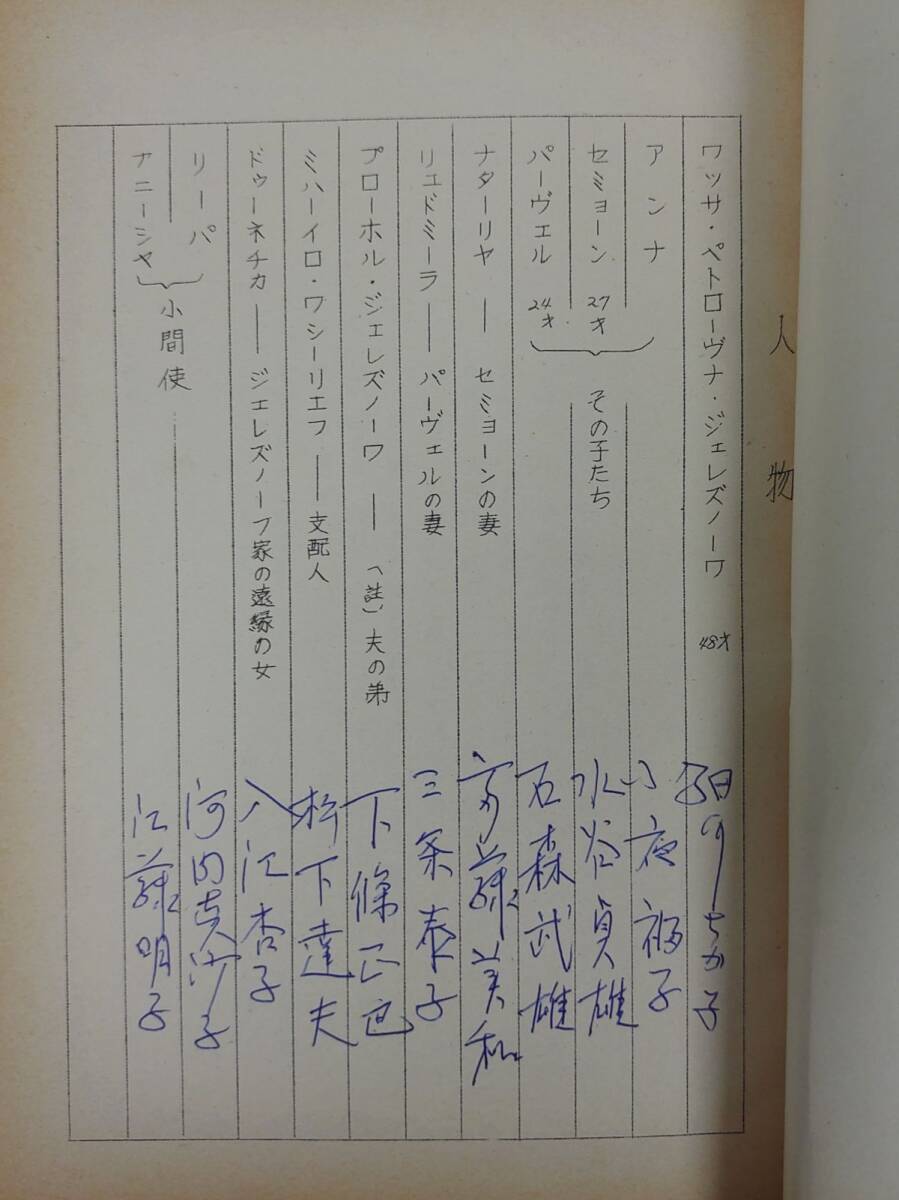 人物
ワッサ・ペトローヴナ・ジェレズノーワ 48才 細川ちか子
アンナ 小夜福子
セミョーン 27才 その子たち 水谷貞雄
パーヴェル 24才 石森武雄
ナターリヤ ― セミョーンの妻 斎藤美和
リュドミーラ ― パーヴェルの妻 三条泰子
プローホル・ジェレズノーワ ― (註)夫の弟 下條正巳
ミハーイロ・ワシーリエフ ― 支配人 松下達夫
ドゥーネチカ ― ジェレズノーフ家の遠縁の女 入江杏子
リーパ 小間使 河内真沙子
アニーシャ 江藤明子